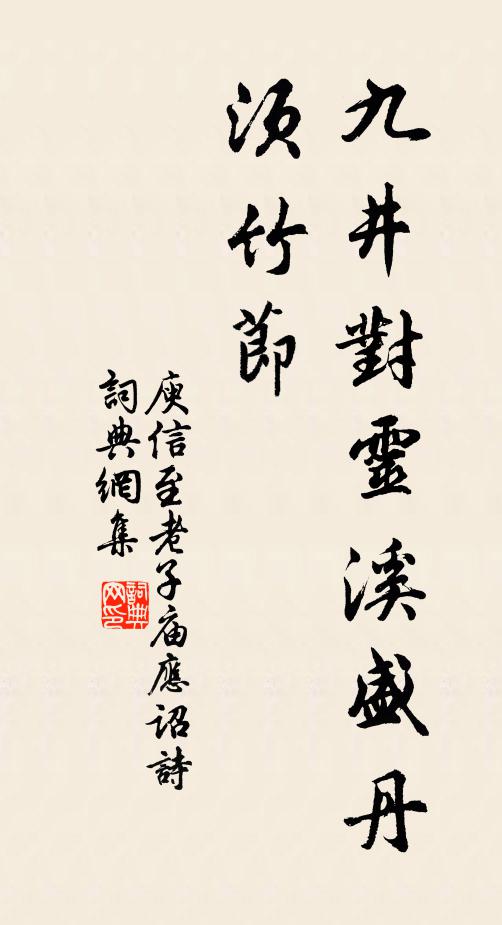 九井對靈溪盛丹
須竹節
庾信至老子庙應詔詩
詞典網集
詞典
网印